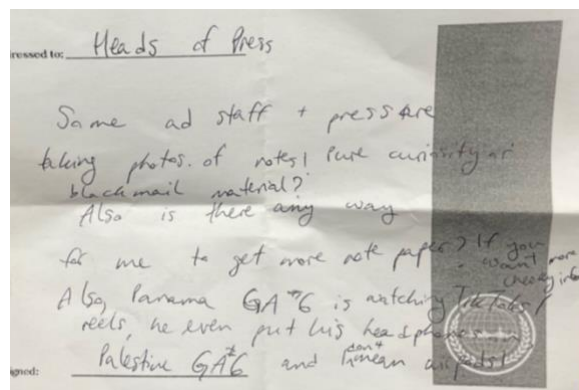 ressed to: Heads of Press
Some ad staff + press are
taking photos. of notes! Pure curiosity or
blackmail material?
Also is there any way
for me to get more note paper? If you
want more
cheeky info
Also, Panama GA*6 is watching TikToks /
reels, he even put his headphones in
don't
Palestine GA*6 and I mean airpods!
gned: